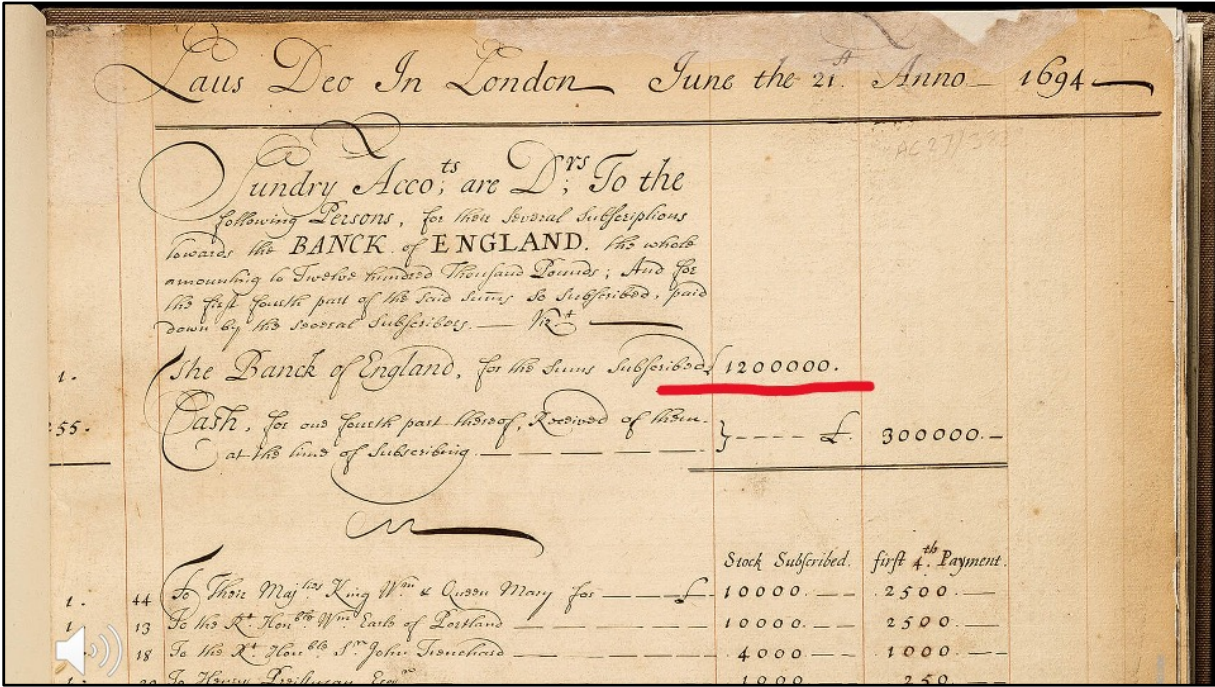 Laus Deo In London June the 21st Anno 1694
AC 27/382
Sundry Acco:ts are D:rs To the
following Persons, for their several Subscriptions
towards the BANCK of ENGLAND. the whole
amounting to Twelve hundred Thousand Pounds; And for
the first fourth part of the said sums so Subscribed, paid
down by the several Subscribers. — Viz.t
1. The Banck of England, for the sums Subscribed { 1200000.
55. Cash, for one fourth part thereof, Received of them
at the time of Subscribing } £. 300000.
Stock Subscribed. first 4.th Payment.
1. 44 To Their Maj.ties King W.m & Queen Mary for £ 10000. 2500.
1 13 To the R.t Hon.ble W.m Earle of Portland 10000. 2500.
18 To the R.t Hon.ble S.r John Trenchard 4000 1000.
1. To Henry Esq.r 1000 250.